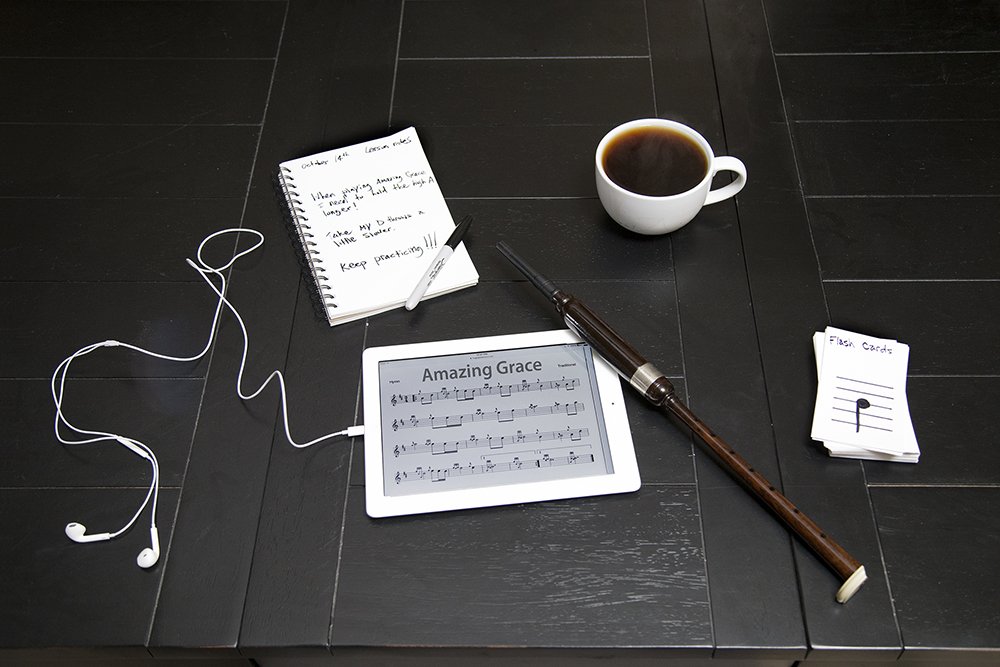 October 14th Lesson notes
When playing Amazing Grace
I need to hold the high A
longer!
Take my D through a
little slower.
Keep practicing!!!
Sharpie
Amazing Grace
Hymn
Traditional
Flash Cards